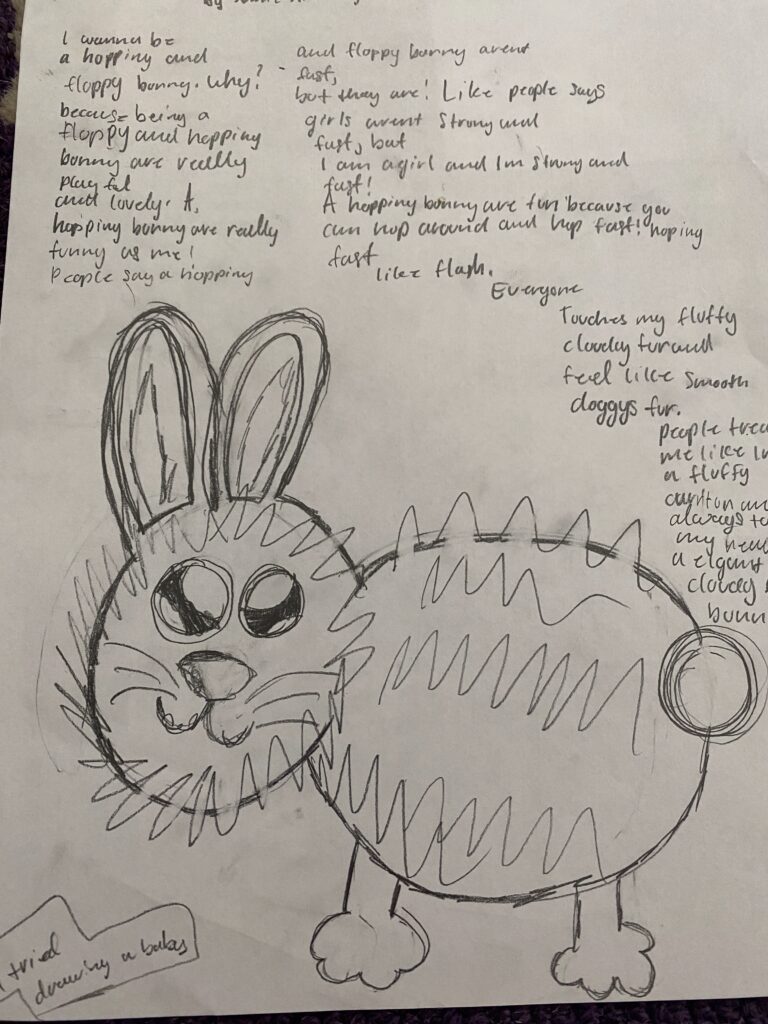 by
I wanna be
a hopping and
floppy bunny. Why?
because being a
floppy and hopping
bunny are really
playful
and lovely. A,
hopping bunny are really
funny as me!
People say a hopping
and floppy bunny arent
fast,
but they are! Like people says
girls arent strong and
fast, but
I am a girl and Im strong and
fast!
A hopping bunny are fun because you
can hop around and hop fast! hoping
fast
like flash.
Everyone
Touches my fluffy
cloudey fur and
feel like smooth
doggys fur.
people trea
me like I
a fluffy
always to
my
a elgant
cloudey
bunn
I tried
drawing a baby